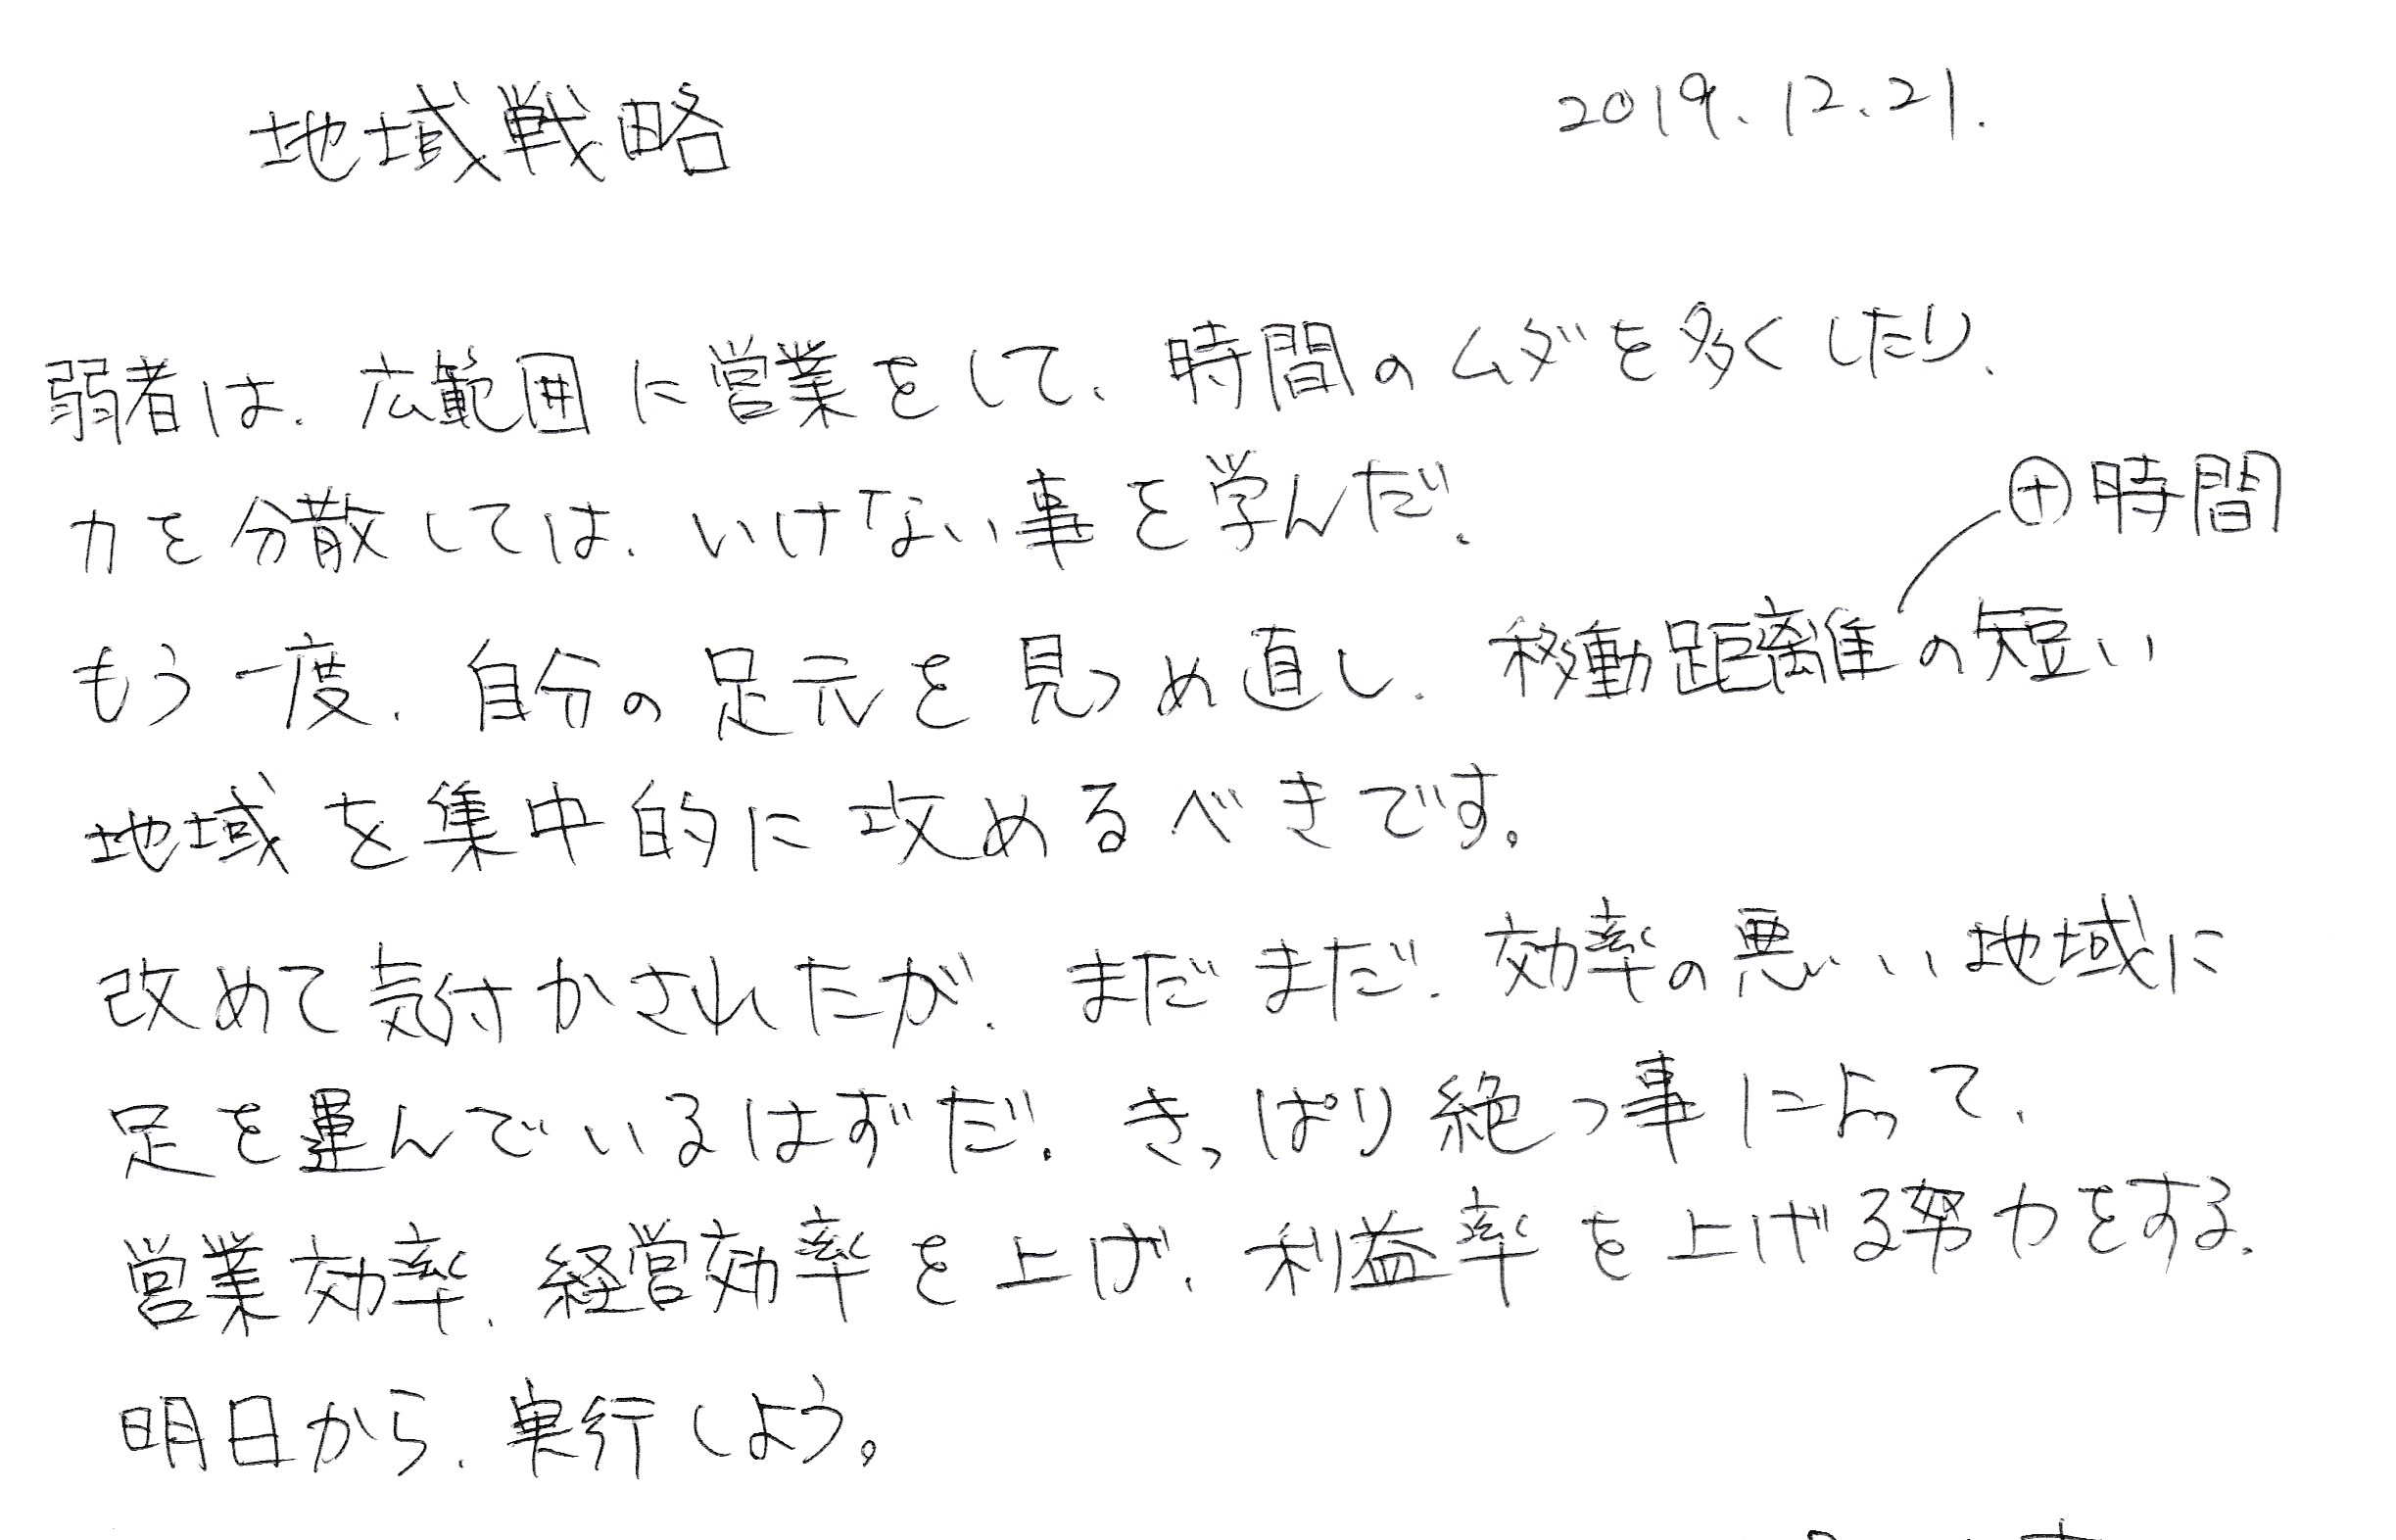 地域戦略 2019.12.21.
弱者は、広範囲に営業をして、時間のムダを多くしたり、
力を分散しては、いけない事を学んだ。
⊕時間
もう一度、自分の足元を見つめ直し、移動距離の短い
地域を集中的に攻めるべきです。
改めて気付かされたが、まだまだ、効率の悪い地域に
足を運んでいるはずだ。きっぱり絶つ事によって、
営業効率、経営効率を上げ、利益率を上げる努力をする。
明日から、実行しよう。